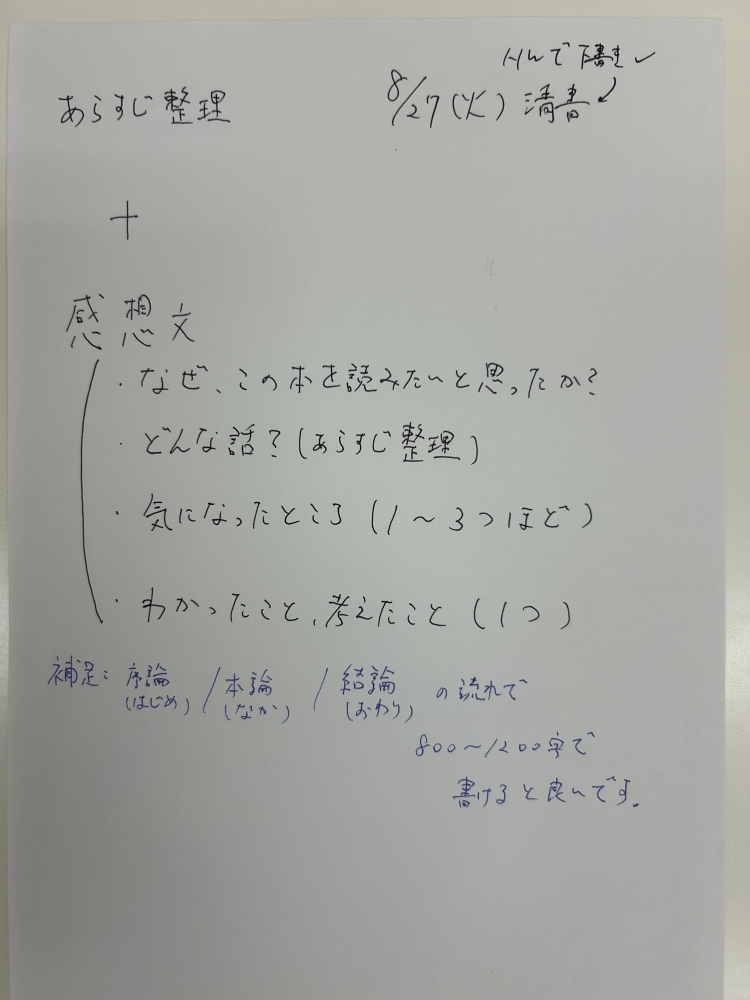 で下書き✓
あらすじ整理
8/27(火) 清書
+
感想文
・なぜ、この本を読みたいと思ったか?
・どんな話?(あらすじ整理)
・気になったところ(1〜3つほど)
・わかったこと、考えたこと(1つ)
補足:序論(はじめ)/本論(なか)/結論(おわり)の流れで
800〜1200字で
書けると良いです。